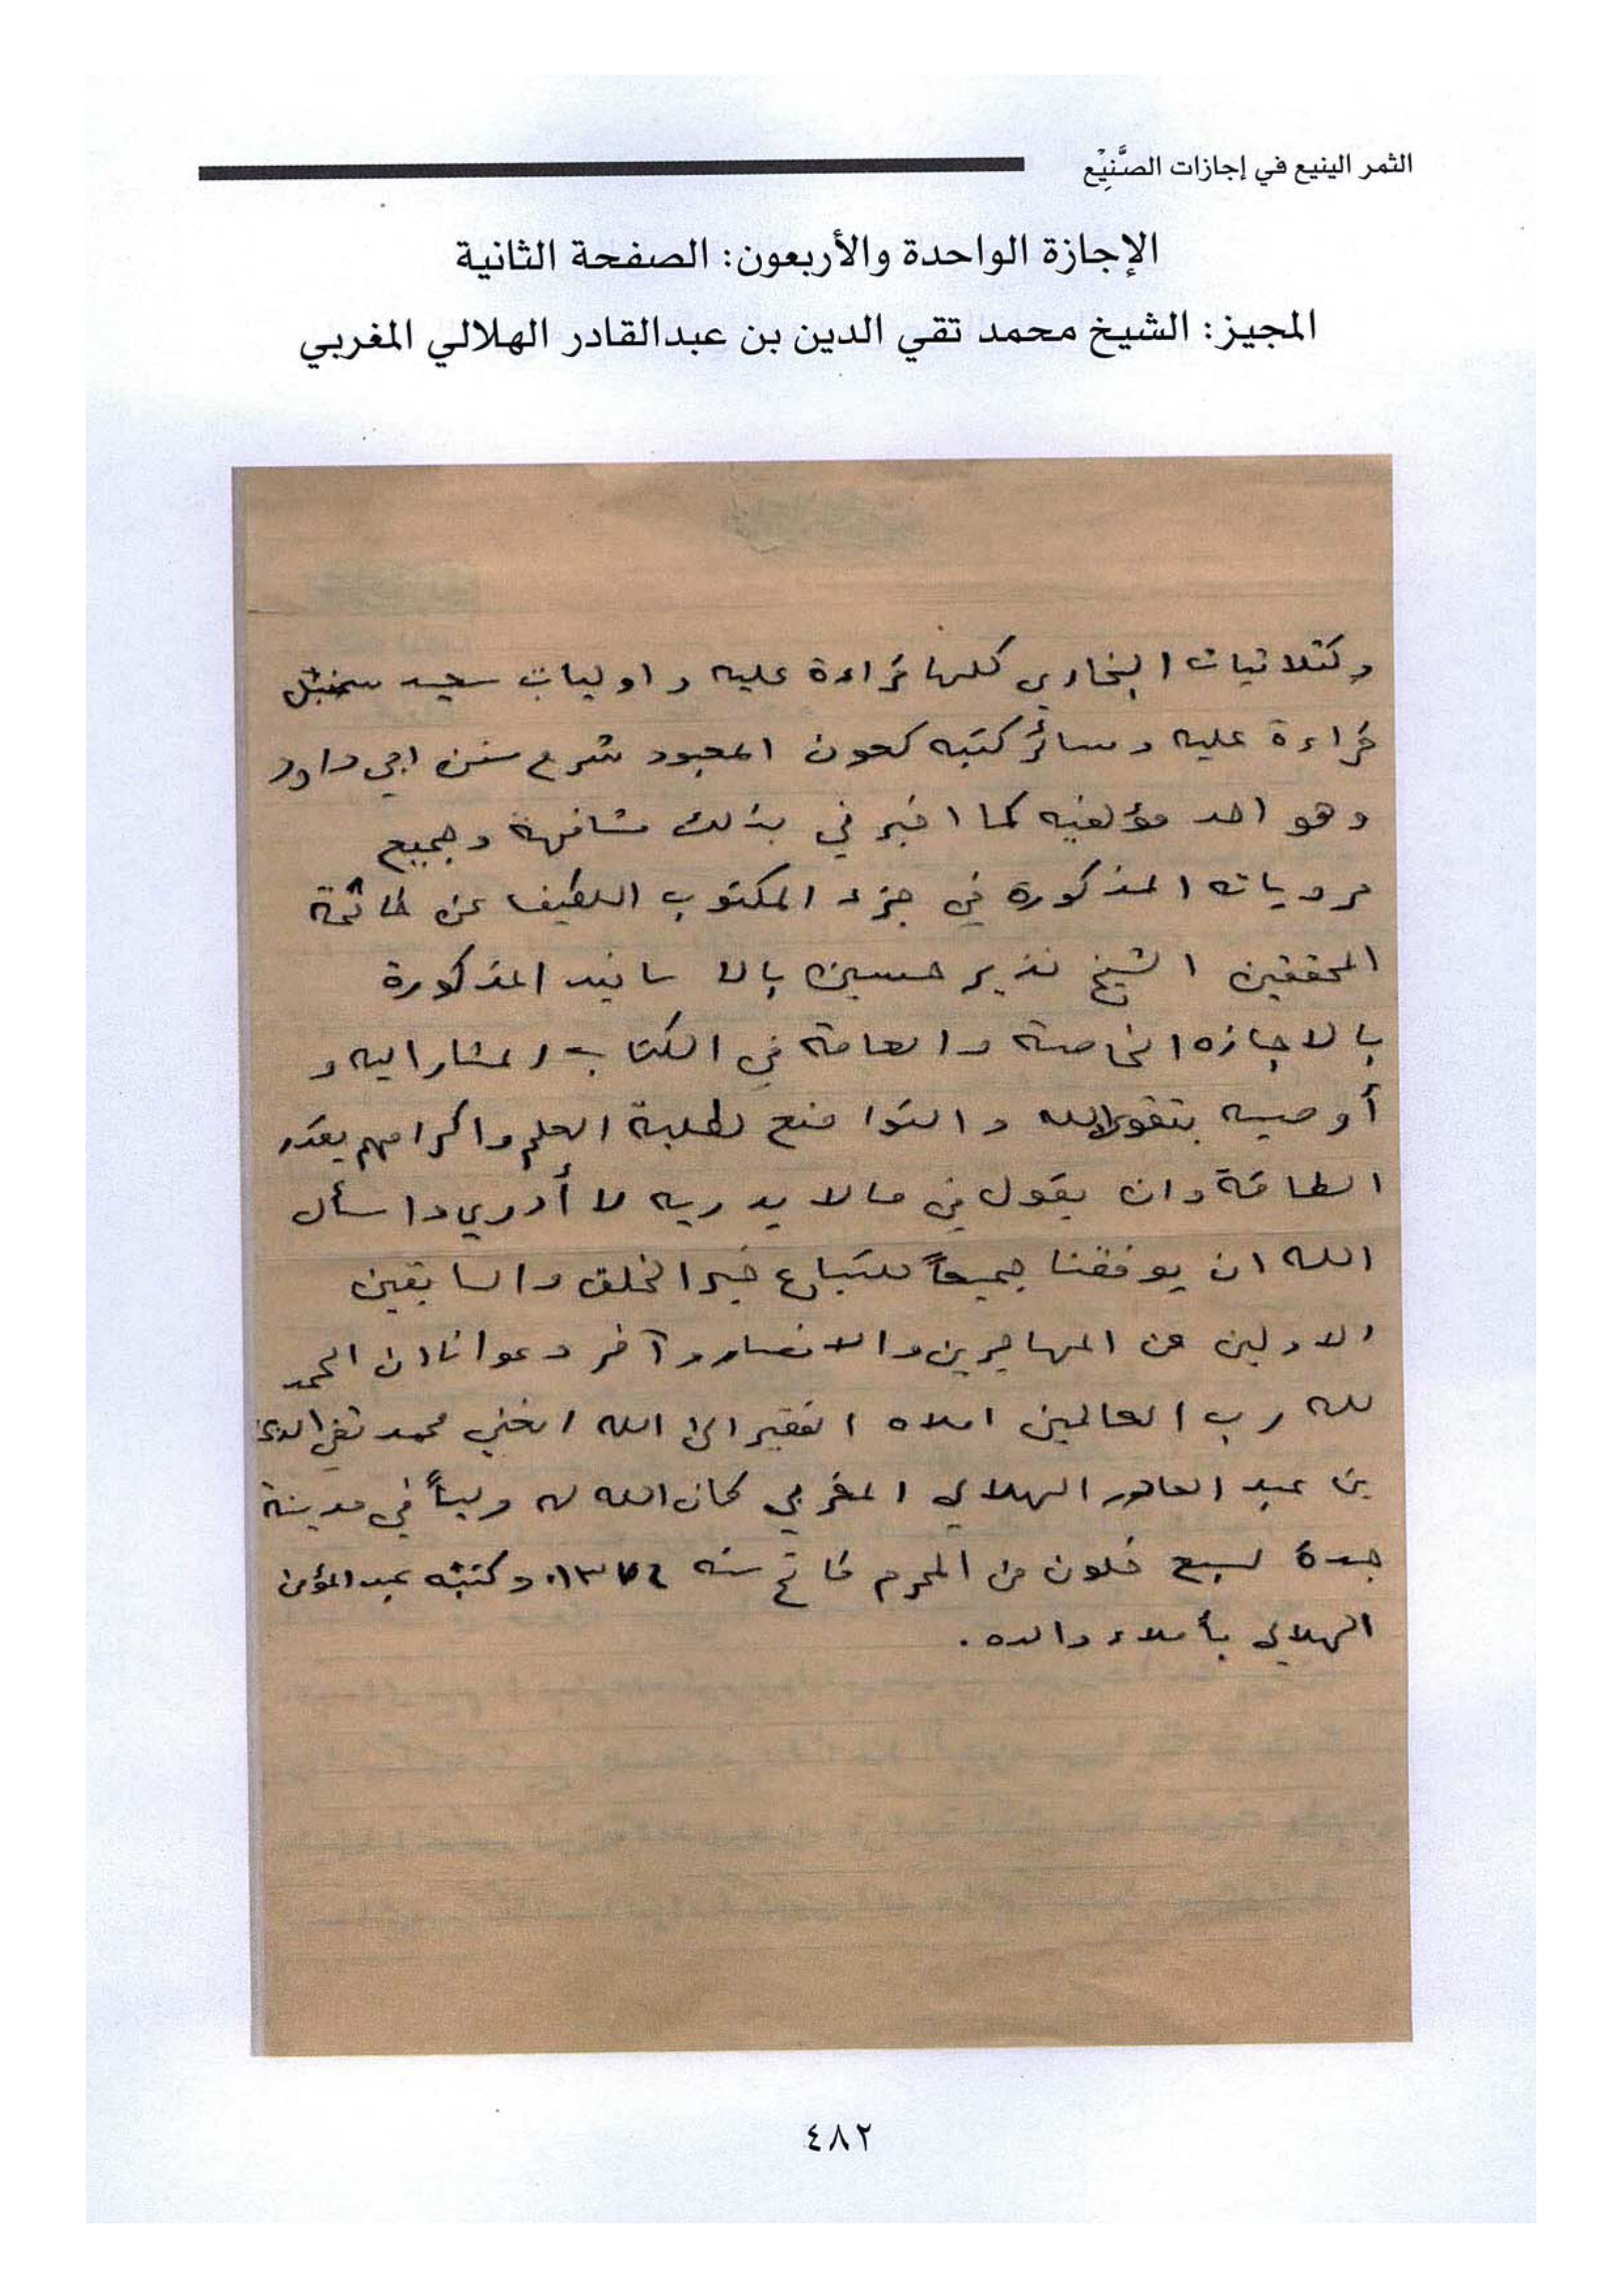 الثمر الينيع في إجازات الصَّنِيْع
الإجازة الواحدة والأربعون: الصفحة الثانية
المجيز: الشيخ محمد تقي الدين بن عبدالقادر الهلالي المغربي
وكثلاثيات البخاري كلها قراءة عليه واوليات سعيد سنبل
قراءة عليه وسائر كتبه كعون المعبود شرح سنن ابي داود
وهو احد مؤلفيه كما اخبرني بذلك مشافهة وجميع
مروياته المذكورة في جزء المكتوب اللطيف عن خاتمة
المحققين الشيخ نذير حسين بالاسانيد المذكورة
بالاجازه الخاصة والعامة في الكتاب المشار اليه و
أوصيه بتقوى الله والتواضع لطلبة العلم واكرامهم بقدر
الطاقة وان يقول في مالا يدريه لا أدري واسأل
الله ان يوفقنا جميعاً لاتباع خير الخلق والسابقين
الاولين من المهاجرين والانصار وآخر دعوانا ان الحمد
لله رب العالمين املاه الفقير الى الله الغني محمد تقي الدين
بن عبد القادر الهلالي المغربي كان الله له ولياً في مدينة
جدة لسبع خلون من المحرم فاتح سنه ١٣٧٤. وكتبه عبد المؤمن
الهلالي بأملاء والده.
٤٨٢